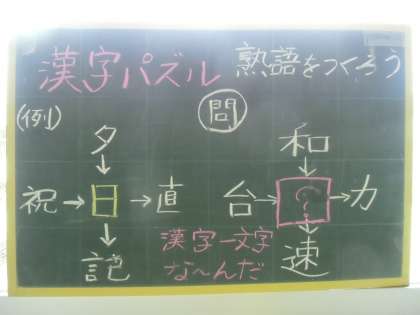 漢字パズル 熟語をつくろう
問
(例)
夕
祝→日→直
記
和
台→?→力
速
漢字一文字
な〜んだ